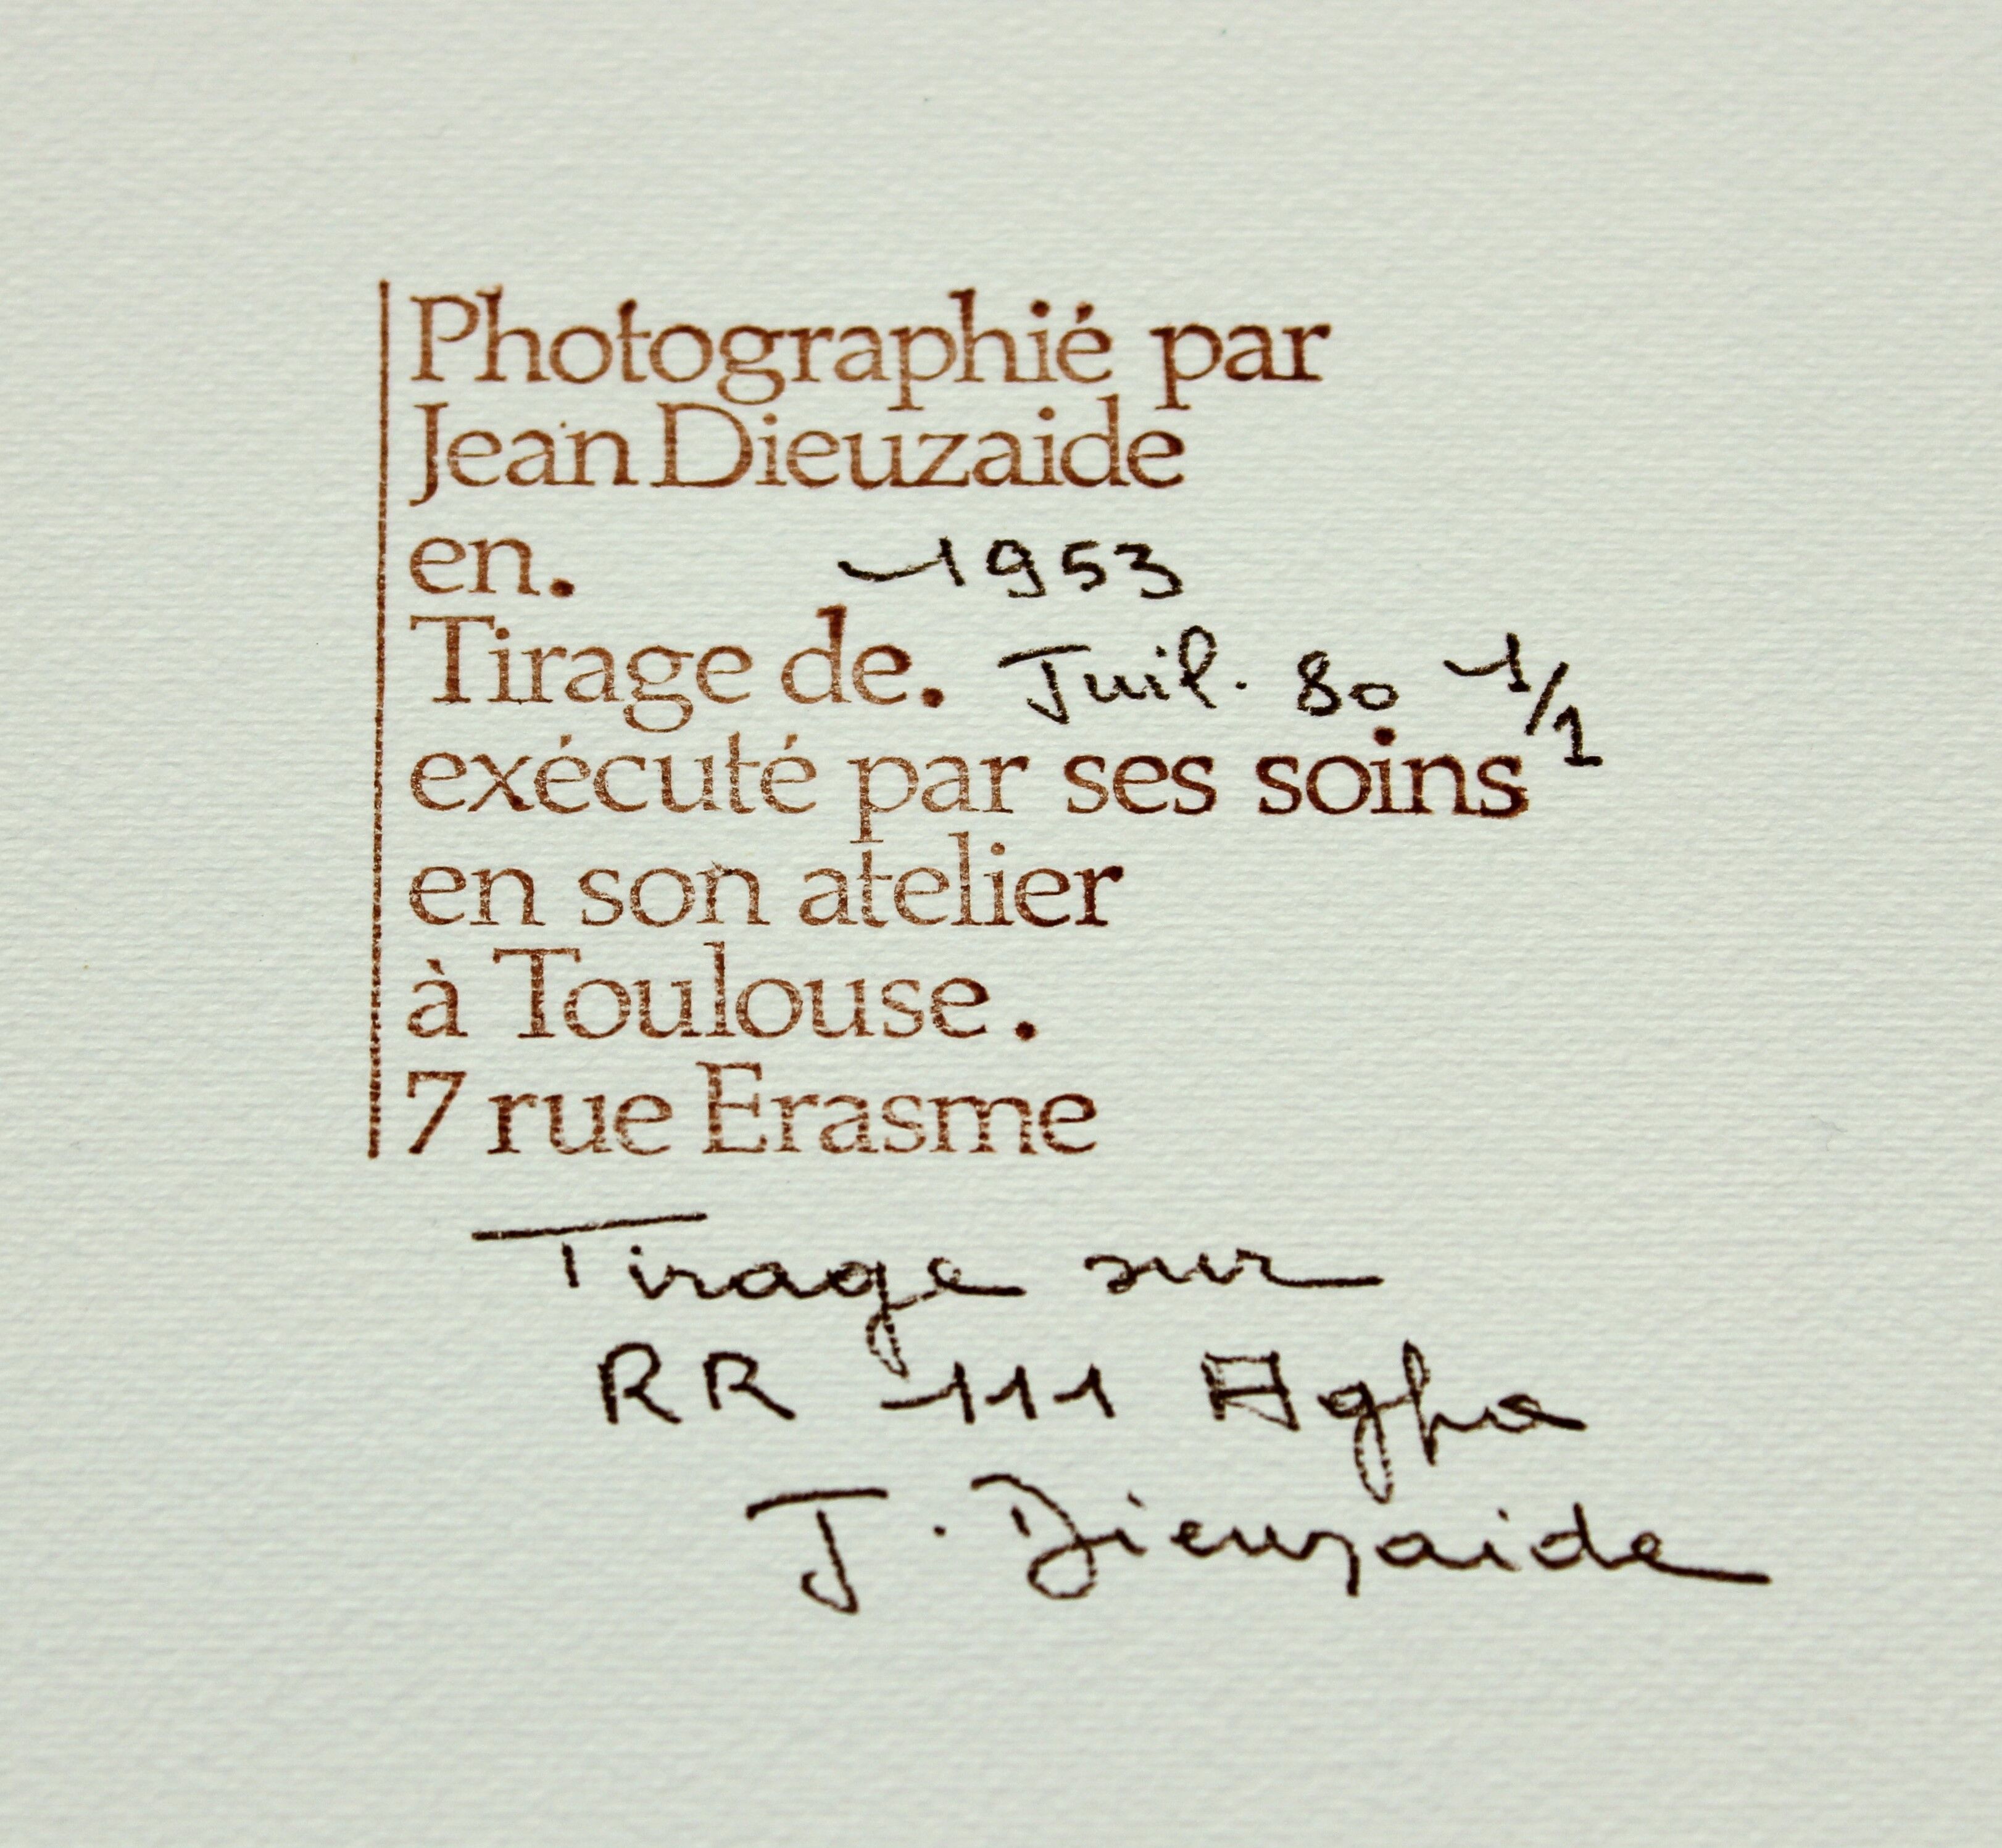 Photographié par
Jean Dieuzaide
en. 1953
Tirage de. Juil. 80 1/1
exécuté par ses soins
en son atelier
à Toulouse.
7 rue Erasme
Tirage sur
RR 111 Agfa
J. Dieuzaide